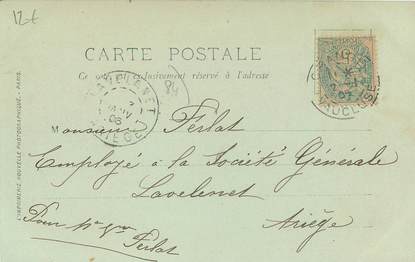 12€
CARTE POSTALE
Ce côté exclusivement réservé à l'adresse
84
LAVELANET
ARIÈGE
VAUCLUSE
Monsieur Ferlat
Employé à la Société Générale
Lavelanet
Ariège
Pour Mr
Ferlat
L'IMPRIMERIE NOUVELLE PHOTOGRAPHIQUE - PARIS